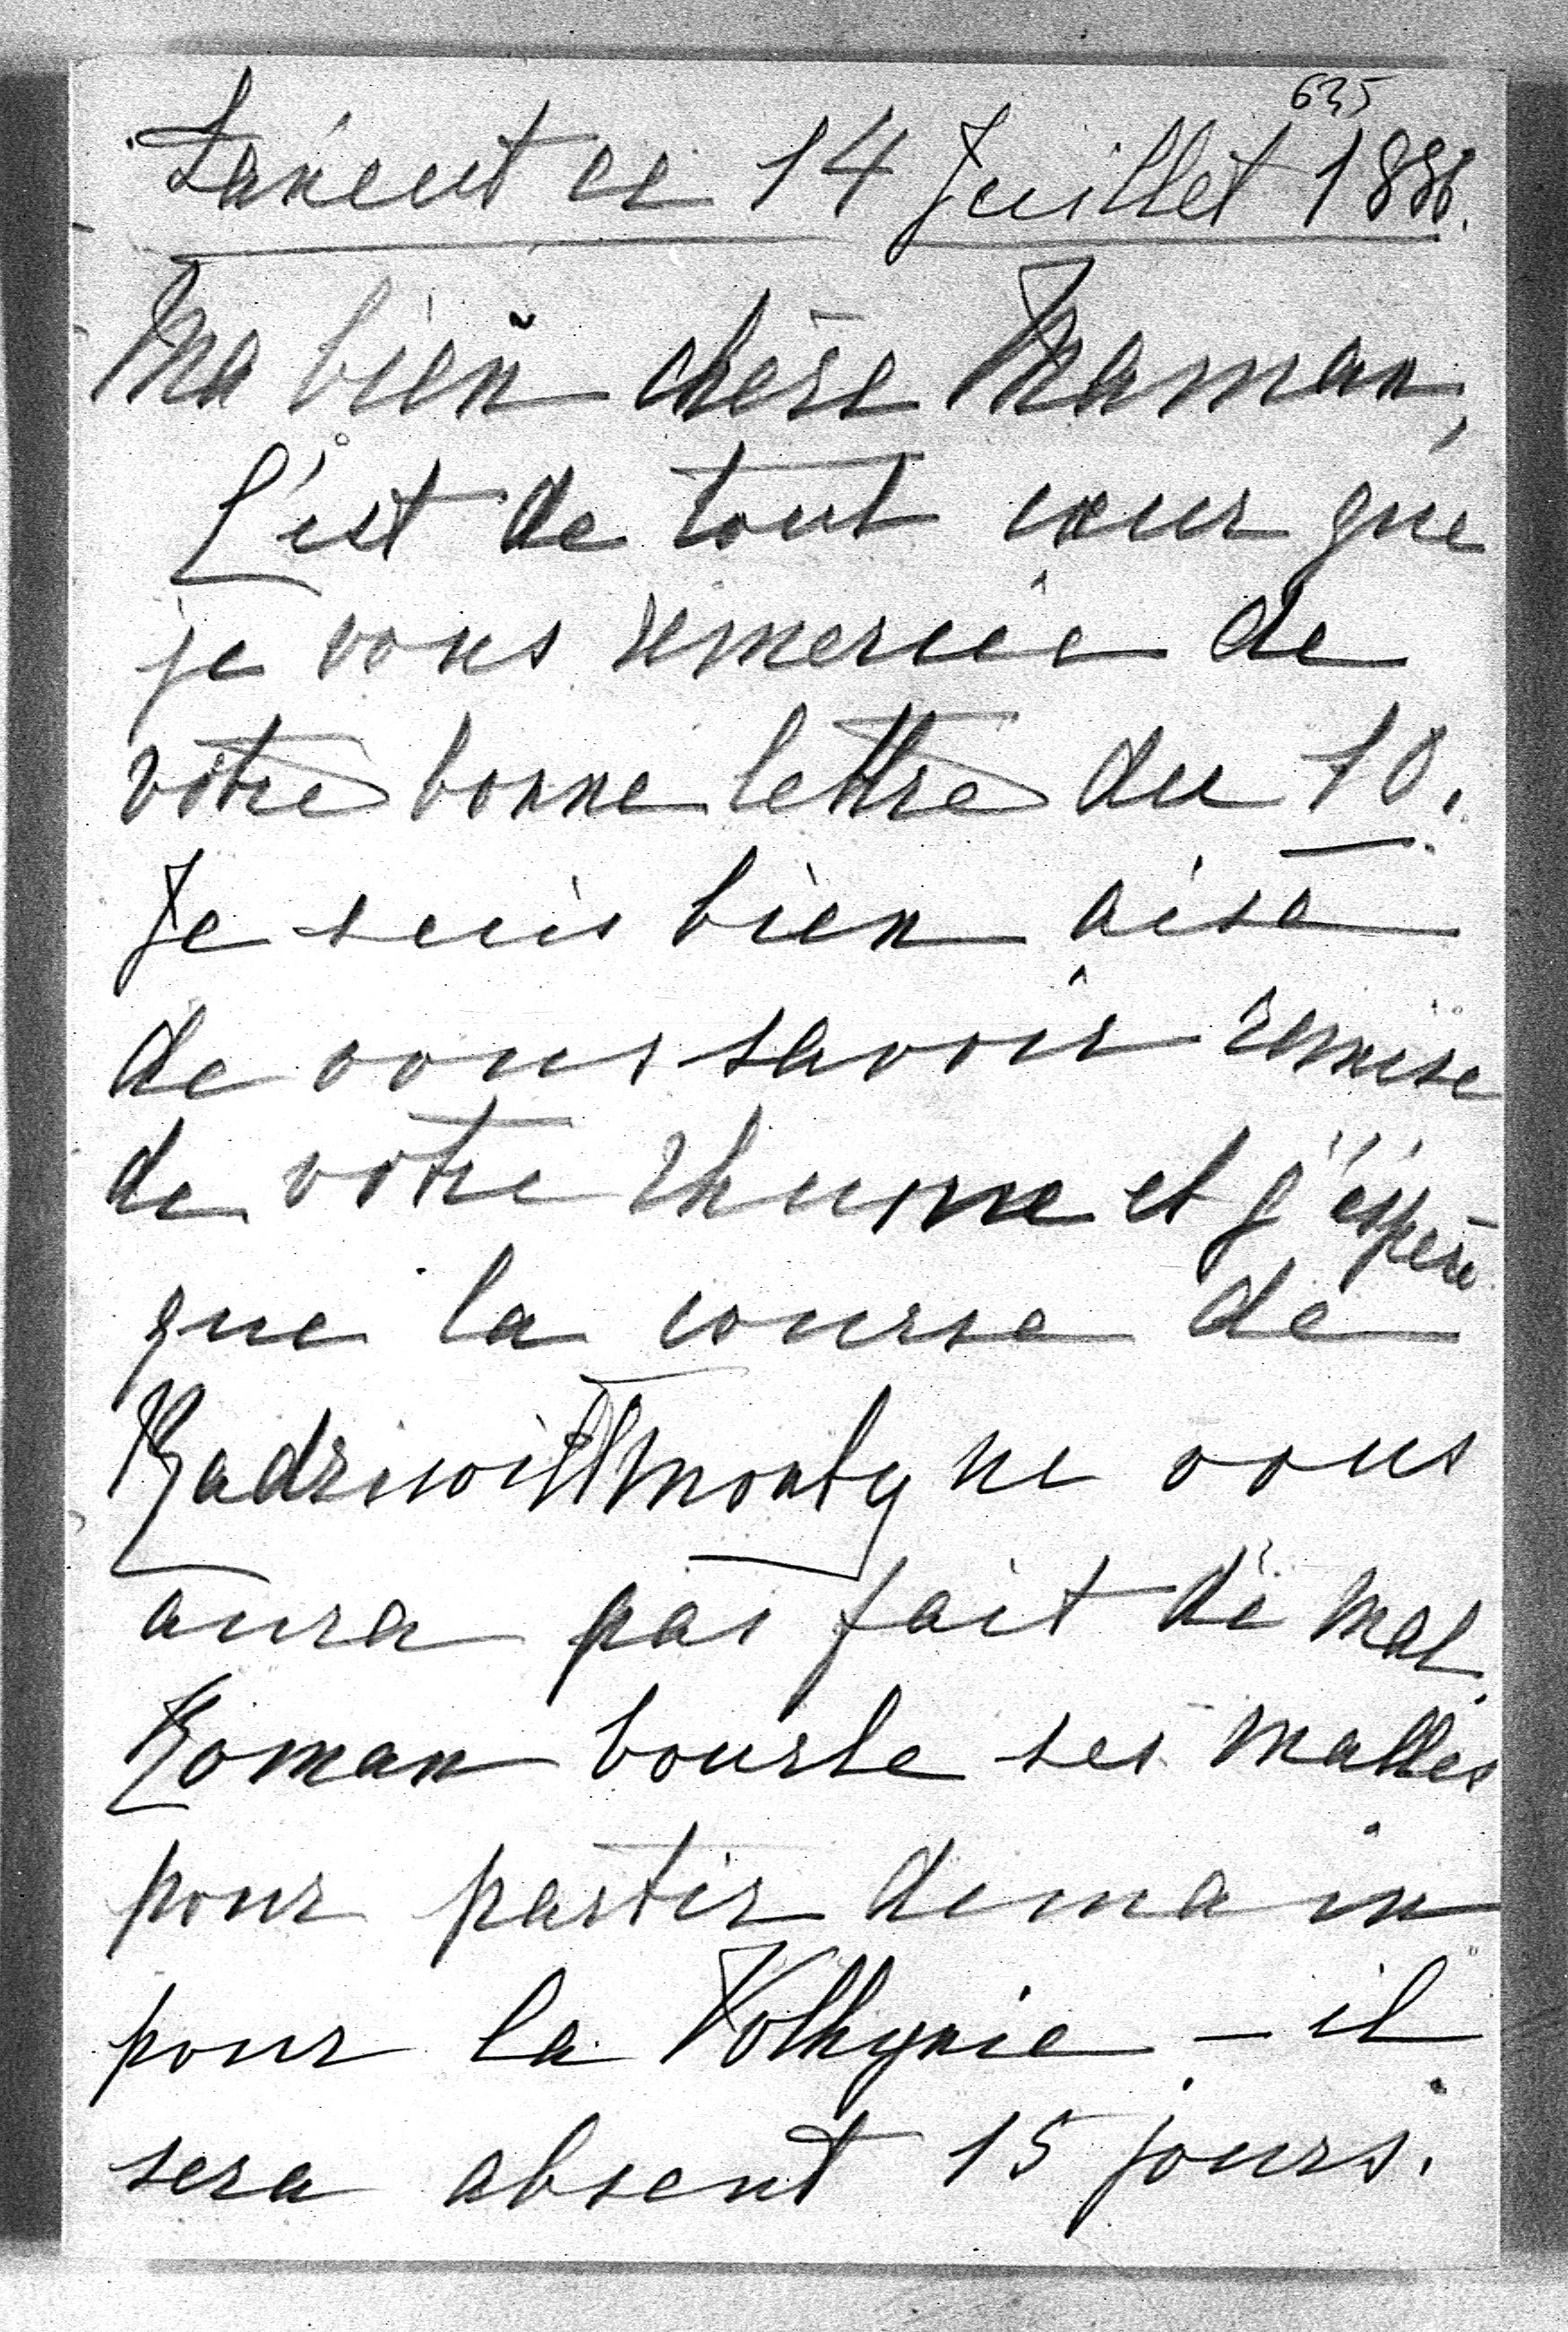 635
Łańcut ce 14 Juillet 1886.
Ma bien chère Maman,
C'est de tout cœur que
je vous remercie de
votre bonne lettre du 10.
Je suis bien aise
de vous savoir remise
de votre rhume et j'éspère
que la course de
Radziwiłłmonty ne vous
aura pas fait de mal.
Roman boucle ses malles
pour partir demain
pour la Volhynie – il
sera absent 15 jours.